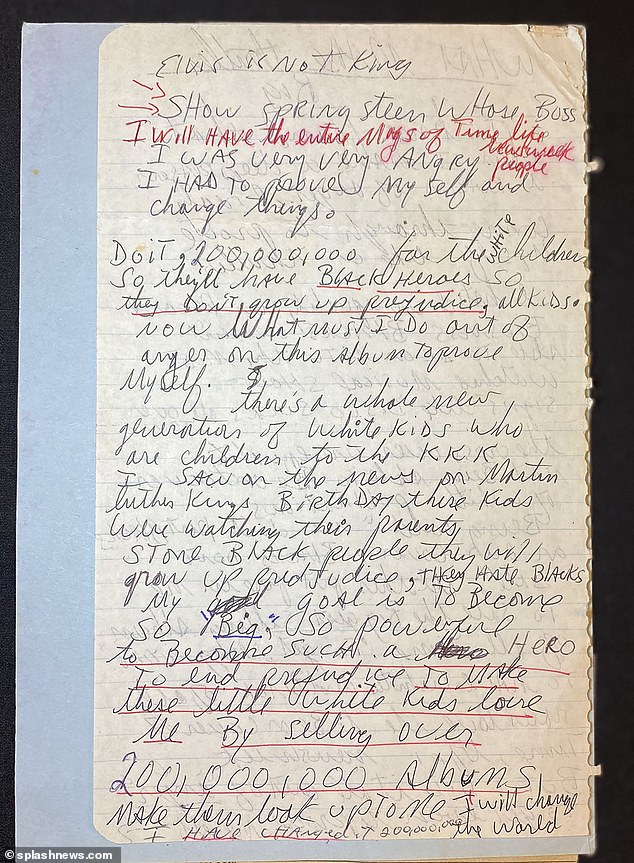 Elvis is Not King
Show Springsteen Whose Boss
I will HAVE the entire Mags of Time life
newsweek
people
I WAS very very Angry
I HAD TO prove My self and
change things.
DO iT, 200,000,000 for the white children
So they'll have BlAck Heroes So
they Don't grow up prejudice, all KiDs.
now What must I Do out of
anger on this Album To prove
Myself.
there's a whole new
generation of White KiDs who
are children to the KKK
I SAW on the news on Martin
luther Kings BirthDAy these Kids
Were watching their parents
STone BlAck people they will
grow up predJudice, THey HAte BlAcks
My goal is To Become
So "Big," So powerful
to Become Such a HeRO
To end prejudice To MAKe
these little white Kids love
Me By selling over
200,000,000 AlbumS
MAKe them look up To Me I will change
the world
I HAVE changed iT 200,000,000
splashnews.com